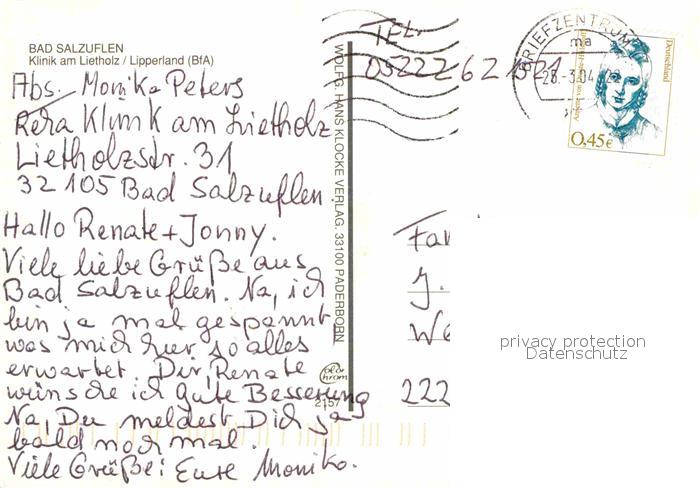 BAD SALZUFLEN
Klinik am Lietholz / Lipperland (BfA)
Abs. Monika Peters
Reha Klinik am Lietholz
Lietholzstr. 31
32105 Bad Salzuflen
Hallo Renate + Jonny.
Viele liebe Grüße aus
Bad Salzuflen. Na, ich
bin ja mal gespannt
was mich hier so alles
erwartet. Dir, Renate
wünsche ich gute Besserung
Na, Du meldest Dich ja
bald noch mal.
Viele Grüße: Eure Monika.
WOLFG. HANS KLOCKE VERLAG, 33100 PADERBORN
2157
Tel.
05222 62
BRIEFZENTRUM
ma
-3.04
Deutschland
0,45€
Fam
J.
We
222
privacy protection
Datenschutz